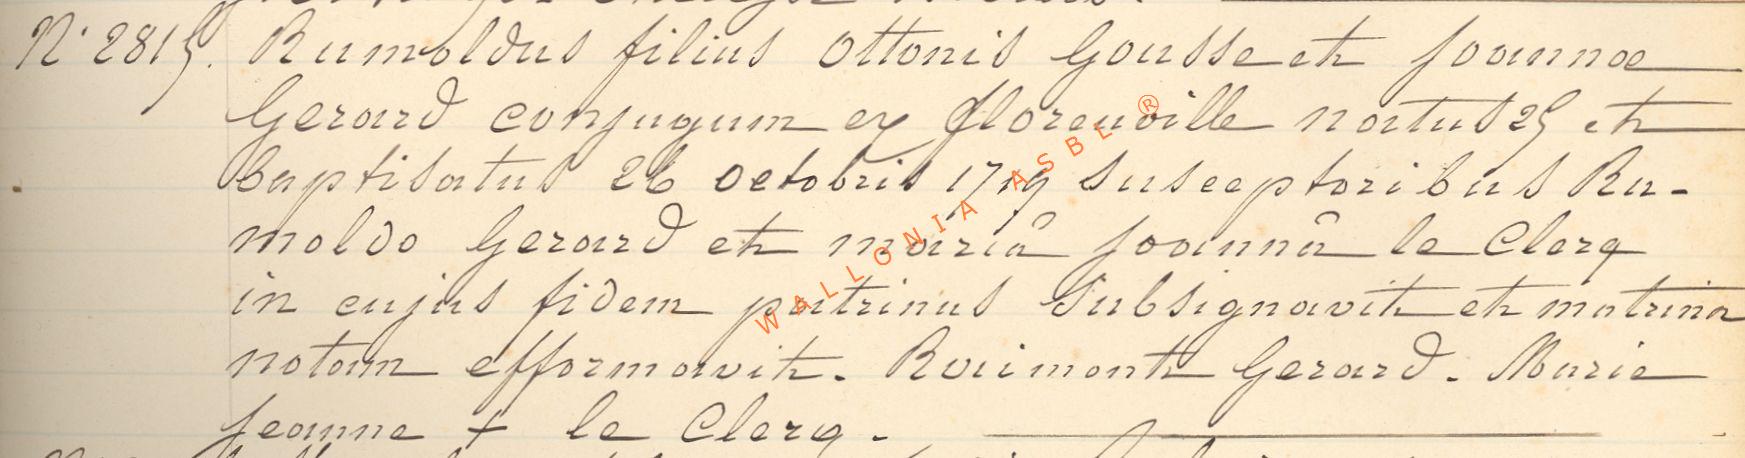 N. 2815. Rumoldus filius Ottonis Gousse et Joannae
Gerard conjugum ex florenville natus 25 et
baptisatus 26 octobris 1719 susceptoribus Ru-
moldo Gerard et mariâ joannâ le Clerq
in cujus fidem patrinus subsignavit et matrina
notam efformavit. Ruimont Gerard. Marie
jeanne + le Clerq.
WALLONIA ASBL ®